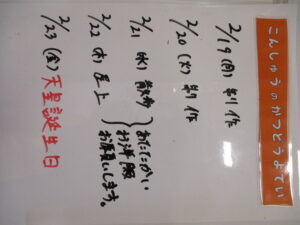 こんしゅうのかつどうよてい
2/19 (月) 制作
2/20 (火) 制作
2/21 (水) 散歩
2/22 (木) 屋上
あたたかい
お洋服
お願いします。
2/23 (金) 天皇誕生日